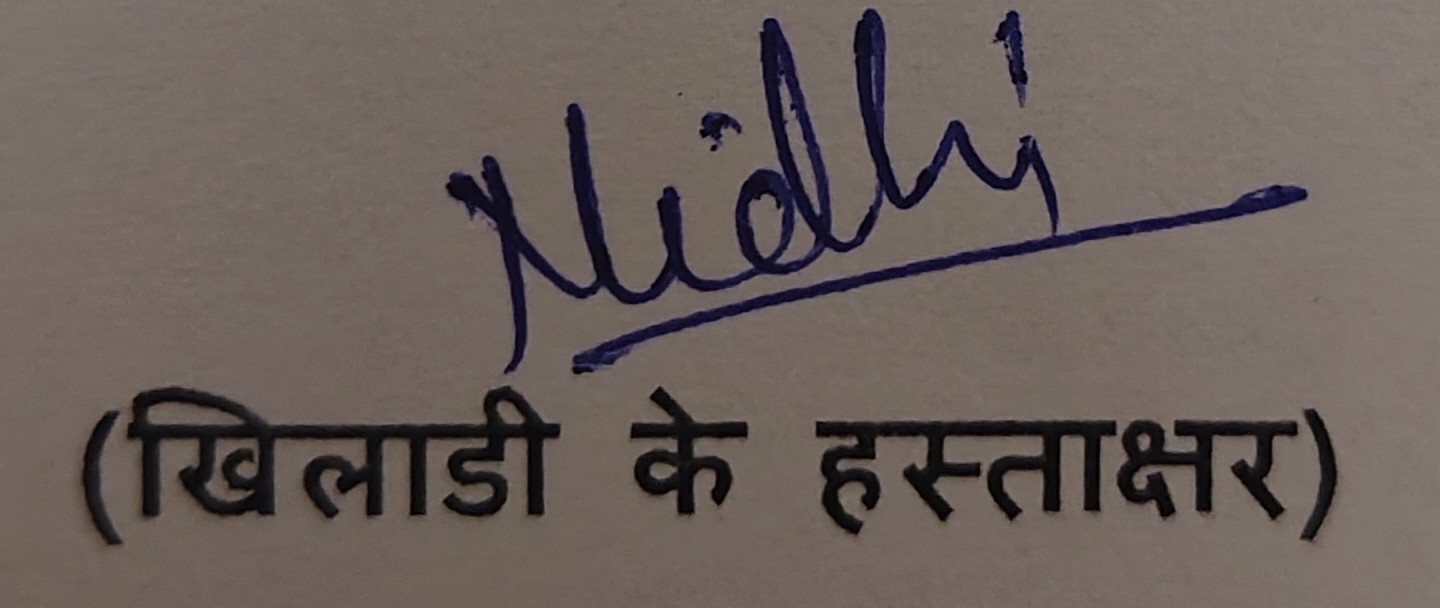 Nidhi
(खिलाडी के हस्ताक्षर)